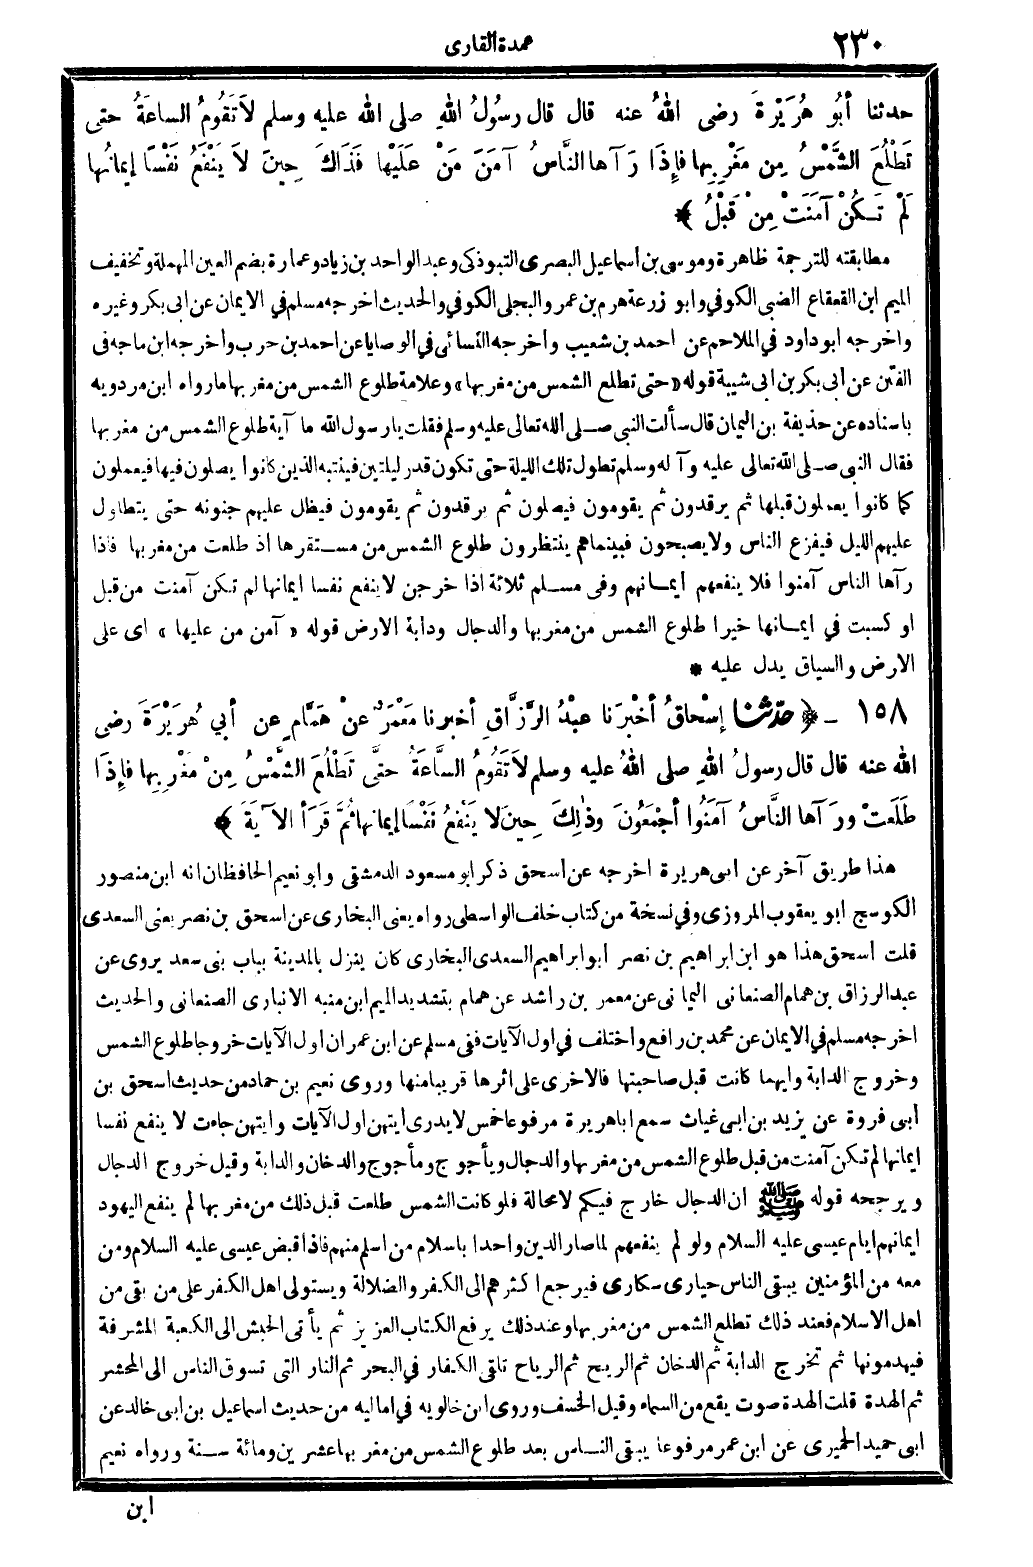 ٢٣٠
عمدة القارى
حدثنا أَبُو هُرَيْرَةَ رضى اللهُ عنه قال قال رسُولُ اللهِ صلى الله عليه وسلم لاَ تَقُومُ الساعَةُ حتى
تَطْلُعَ الشَّمْسُ مِن مَغْرِبِها فإِذَا رَآها النَّاسُ آمَنَ مَنْ عَلَيْها فَذَاكَ حِينَ لاَ يَنْفَعُ نَفْسًا إيمانُها
لَمْ تَـكُنْ آمَنَتْ مِنْ قَبْلُ ﴾ *
مطابقته للترجمة ظاهرة وموسى بن اسماعيل البصرى التبوذكى وعبد الواحد بن زياد وعمارة بضم العين المهملة وتخفيف
الميم ابن القعقاع الضبى الكوفي وابو زرعة هرم بن عمرو البجلى الكوفي والحديث اخرجه مسلم في الايمان عن ابى بكر وغيره
واخرجه ابو داود في الملاحم عن احمد بن شعيب واخرجه النسائى في الوصايا عن احمد بن حرب واخرجه ابن ماجه فى
الفتن عن ابى بكر بن ابى شيبة قوله «حتى تطلع الشمس من مغربها» وعلامة طلوع الشمس من مغربها مارواه ابن مردويه
باسناده عن حذيفة بن اليمان قال سألت النبى صـلى الله تعالى عليه وسلم فقلت يارسول الله ما آية طلوع الشمس من مغربها
فقال النبى صـلى الله تعالى عليه وآ له وسلم تطول تلك الليلة حتى تكون قدر ليلتين فينتبه الذين كانوا يصلون فيها فيعملون
كما كانوا يعملون قبلها ثم يرقدون ثم يقومون فيصلون ثم يرقدون ثم يقومون فيظل عليهم جنونه حتى يتطاول
عليهم الليل فيفزع الناس ولا يصبحون فبينماهم ينتظرون طلوع الشمس من مستقرها اذ طلعت من مغربها فاذا
رآها الناس آمنوا فلا ينفعهم ايمـانهم وفى مسـلم ثلاثة اذا خرجن لا ينفع نفسا ايمانها لم تكن آمنت من قبل
او كسبت في ايمـانها خيرا طلوع الشمس من مغربها والدجال ودابة الارض قوله « آمن من عليها » اى على
الارض والسياق يدل عليه *
١٥٨ ـ ﴿ حَدَّثَنَا إسْحاقُ أخْبرَنا عبْدُ الرَّزَّاقِ أخبرنا مَعْمَرٌ عنْ هَمَّامٍ عن أبي هُرَيْرَةَ رضى
الله عنه قال قال رسولُ اللهِ صلى اللهُ عليه وسلم لاَ تَقُومُ السَّاعَةُ حتَّى تَطْلُعَ الشَّمْسُ مِنْ مَغْرِبِها فإِذَا
طَلَعَتْ ورَآها النَّاسُ آمَنُوا أجْمَعُونَ وذٰلِكَ حِينَ لا يَنْفعُ نَفْسًا إيمانها ثُمَّ قَرَأ الآيَةَ ﴾
هذا طريق آخر عن ابى هريرة اخرجه عن اسحق ذكر ابو مسعود الدمشقى وابو نعيم الحافظان انه ابن منصور
الكوسج ابو يعقوب المروزى وفي نسخة من كتاب خلف الواسطى رواه يعنى البخارى عن اسحق بن نصر يعنى السعدى
قلت اسحق هذا هو ابن ابراهيم بن نصر ابو ابراهيم السعدى البخارى كان ينزل بالمدينة بباب بنى سعد يروى عن
عبد الرزاق بن همام الصنعانى اليمانى عن معمر بن راشد عن همام بتشديد الميم ابن منبه الانبارى الصنعانى والحديث
اخرجه مسلم في الايمان عن محمد بن رافع واختلف في اول الآيات ففى مسلم عن ابن عمر ان اول الآيات خروجا طلوع الشمس
وخروج الدابة وايهما كانت قبل صاحبتها فالاخرى على اثرها قريبا منها وروى نعيم بن حماد من حديث اسحق بن
أبى فروة عن يزيد بن ابى غياث سمع ابا هريرة مرفوعا خمس لا يدرى ايتهن اول الآيات وايتهن جاءت لا ينفع نفسا
ايمانها لم تكن آمنت من قبل طلوع الشمس من مغربها والدجال ويأجوج ومأجوج والدخان والدابة وقيل خروج الدجال
ويرجحه قوله ﷺ ان الدجال خارج فيكم لا محالة فلو كانت الشمس طلعت قبل ذلك من مغربها لم ينفع اليهود
ايمانهم ايام عيسى عليه السلام ولو لم ينفعهم لما صار الدين واحدا باسلام من اسلم منهم فاذا قبض عيسى عليه السلام ومن
معه من المؤمنين يبقى الناس حيارى سكارى فيرجع اكثرهم الى الكفر والضلالة ويستولى اهل الكفر على من بقى من
اهل الاسلام فعند ذلك تطلع الشمس من مغربها وعند ذلك يرفع الكتاب العزيز ثم يأتى الحبش الى الكعبة المشرفة
فيهدمونها ثم تخرج الدابة ثم الدخان ثم الريح ثم الرياح تلقى الكفار في البحر ثم النار التى تسوق الناس الى المحشر
ثم الهدة قلت الهدة صوت يقع من السماء وقيل الخسف وروى ابن خالويه في اماليه من حديث اسماعيل بن ابى خالد عن
ابى حميد الحميرى عن ابن عمر مرفوعا يبقى النـاس بعد طلوع الشمس من مغربها عشرين ومائة سـنة ورواه نعيم
ابن